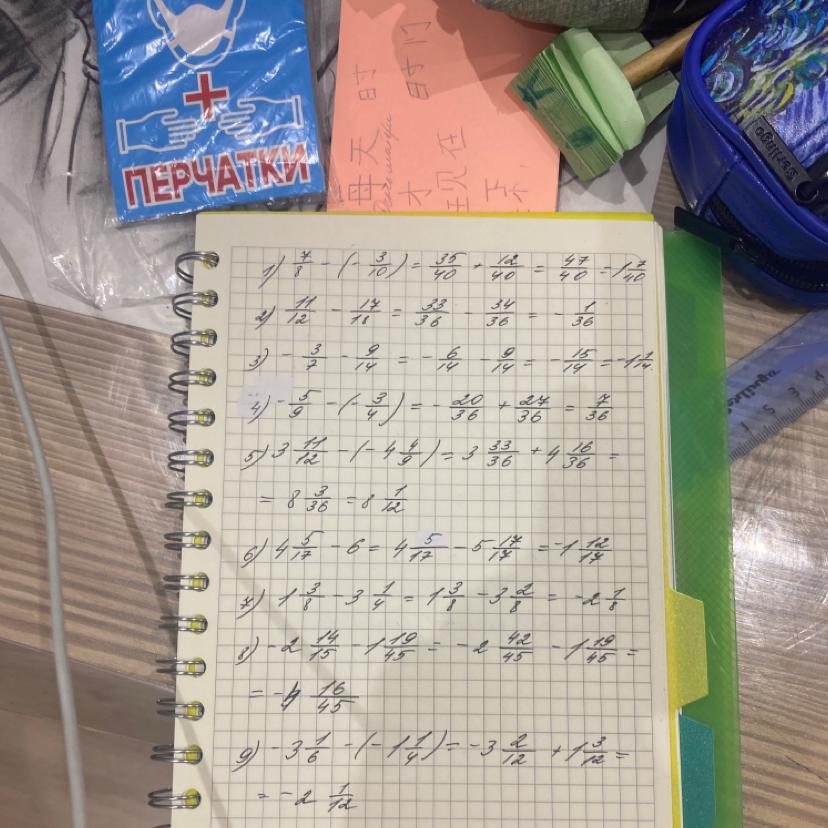 ПЕРЧАТКИ
每天 时
才 时门
现在
Berlingo
1) 7/8 - (-3/10) = 35/40 + 12/40 = 47/40 = 1 7/40
2) 11/12 - 17/18 = 33/36 - 34/36 = - 1/36
3) - 3/7 - 9/14 = - 6/14 - 9/14 = - 15/14 = -1 1/14.
4) - 5/9 - (- 3/4) = - 20/36 + 27/36 = 7/36
5) 3 11/12 - (- 4 4/9) = 3 33/36 + 4 16/36 =
= 8 3/36 = 8 1/12
6) 4 5/17 - 6 = 4 5/17 - 5 17/17 = -1 12/17
7) 1 3/8 - 3 1/4 = 1 3/8 - 3 2/8 = -2 1/8
8) - 2 14/15 - 1 19/45 = - 2 42/45 - 1 19/45 =
= -4 16/45
9) - 3 1/6 - (- 1 1/4) = - 3 2/12 + 1 3/12 =
= - 2 1/12